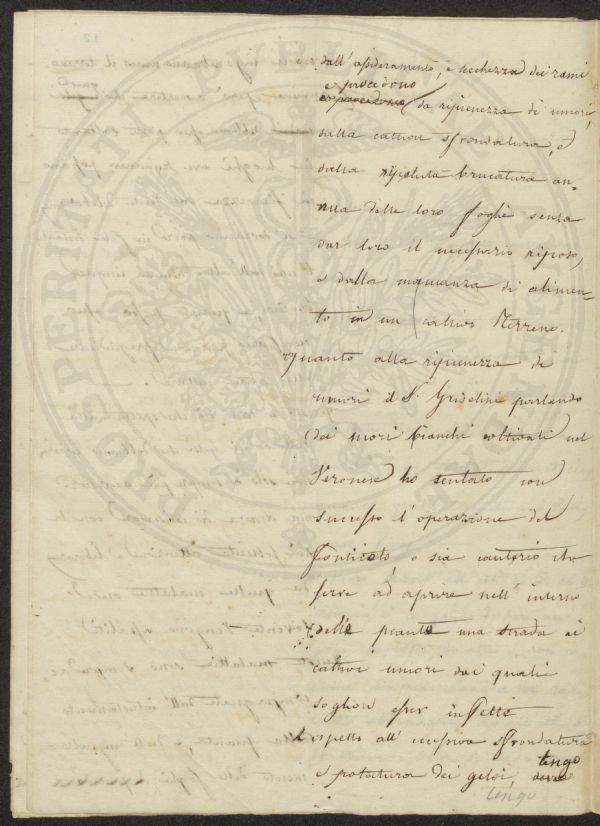 dall'assideramento, e secchezza dei rami
e procedono
da ripienezza di umori,
dalla cattiva sfrondatura, e
dalla ripetuta brucatura an-
nua delle loro foglie senza
dar loro il necessario riposo,
e dalla mancanza di alimen-
to in un cattivo Terreno.
Quanto alla ripienezza di
umori il S. Griselini parlando
dei mori bianchi coltivati nel
Veronese ho tentato con
successo l'operazione del
fonticolo, o sia cauterio che
serve ad aprire nell'interno
delle piante una strada ai
cattivi umori dai quali
soglion esser infette
Rispetto all'eccessiva sfrondatura
e potatura dei gelsi, tengo
tengo